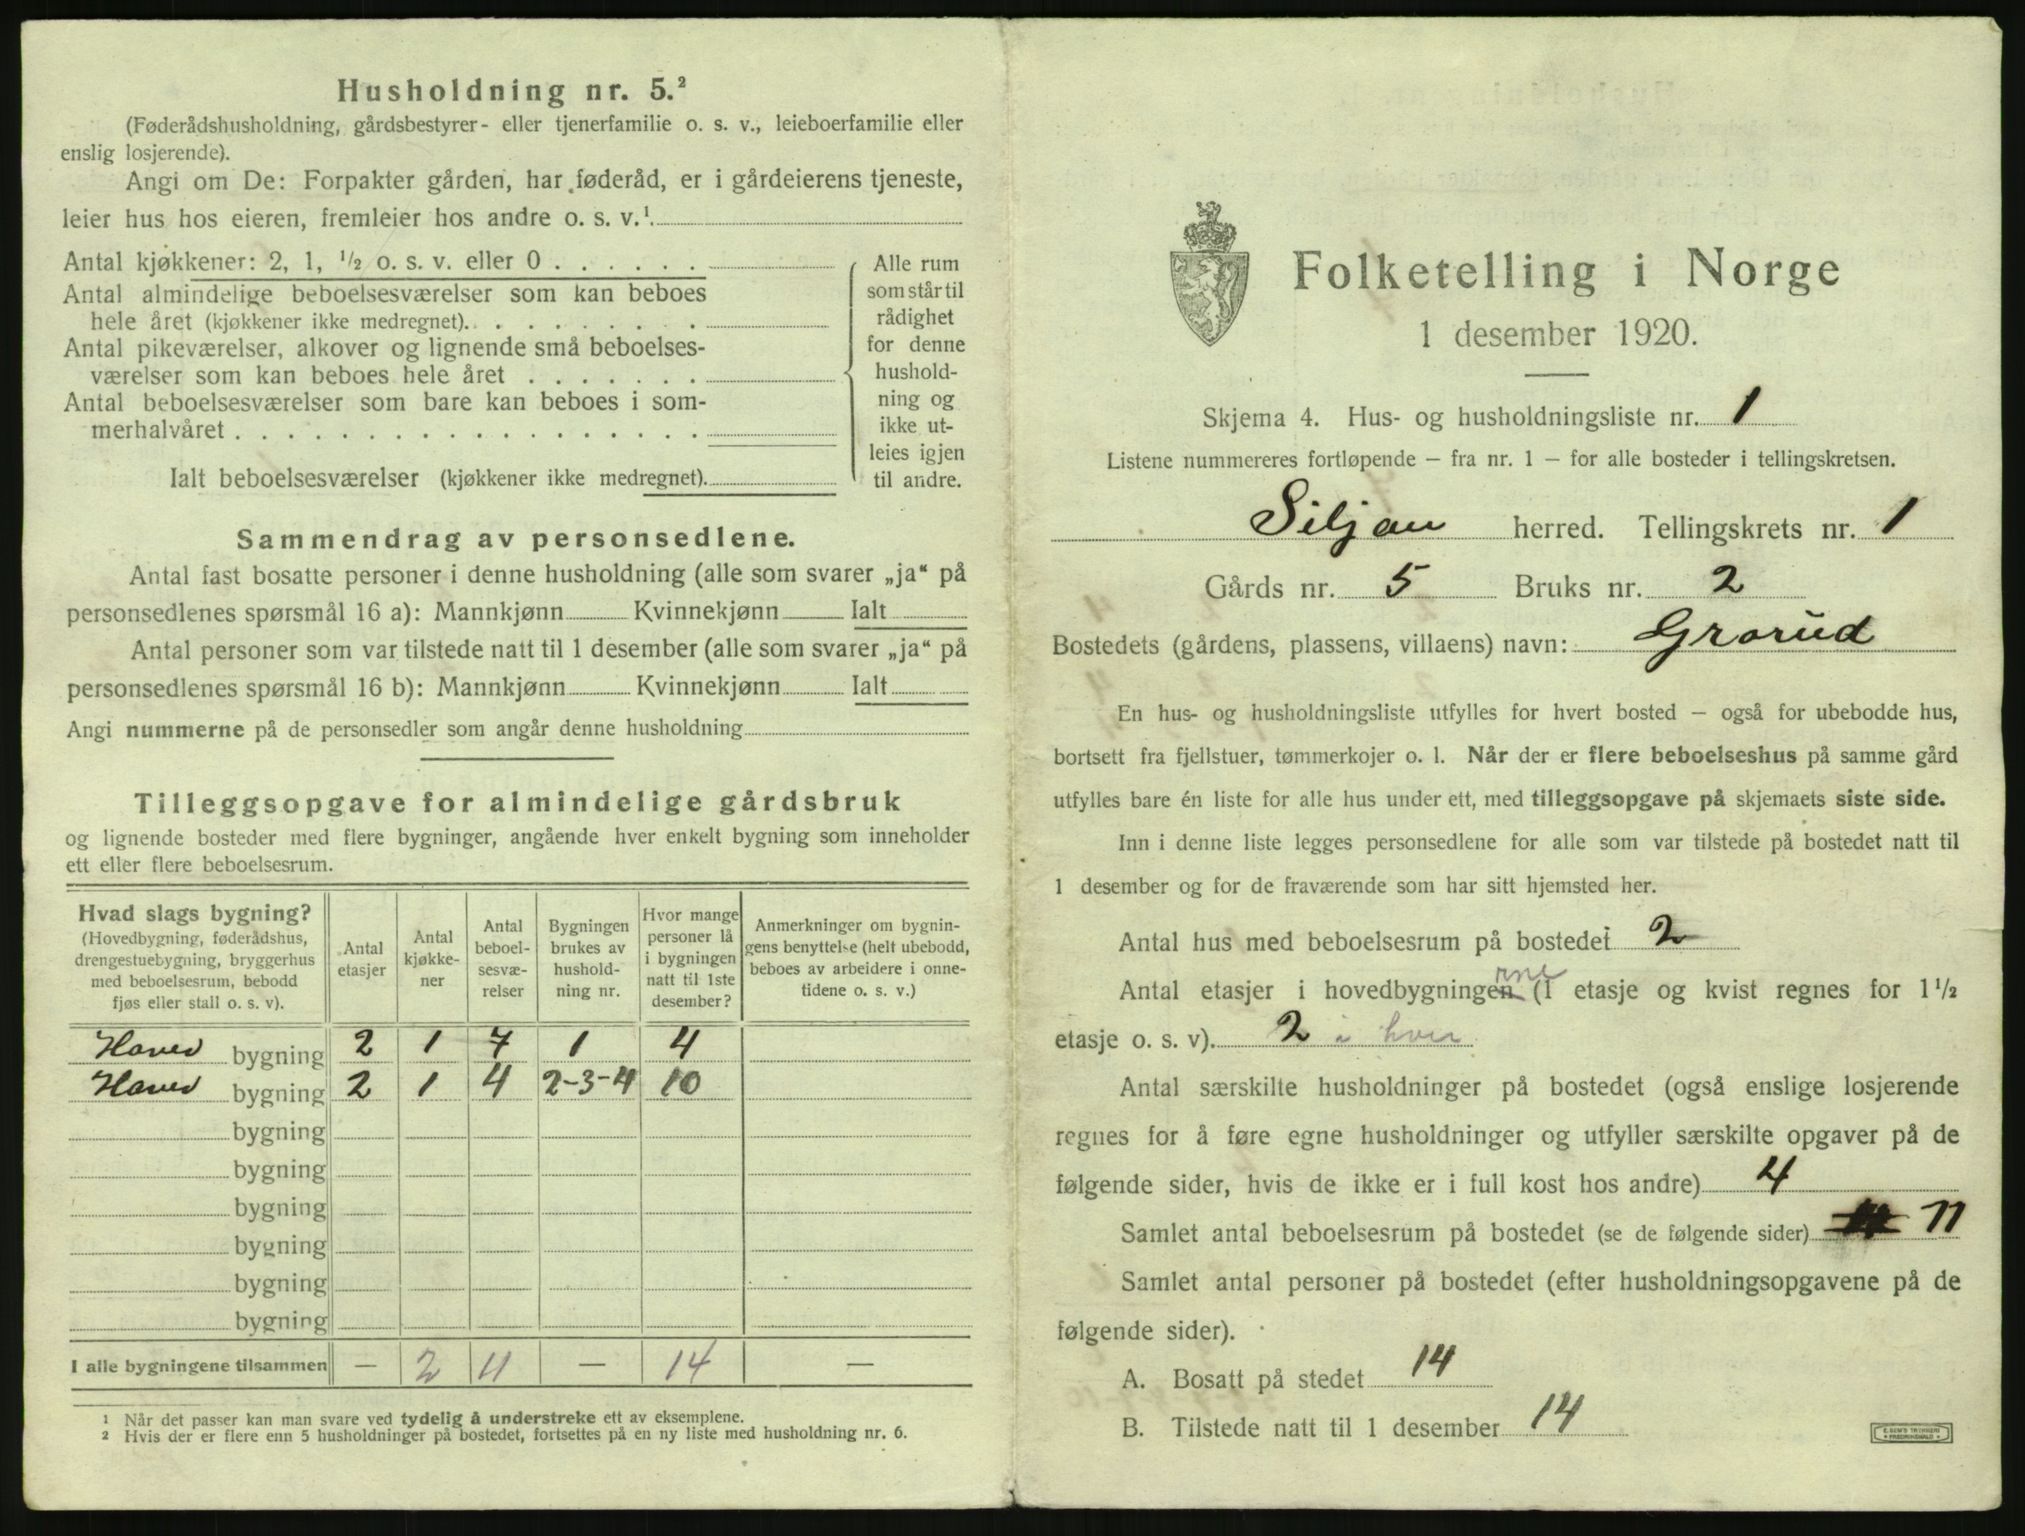 Husholdning nr. 5.²
(Føderådshusholdning, gårdsbestyrer- eller tjenerfamilie o. s. v., leieboerfamilie eller
enslig losjerende).
Angi om De: Forpakter gården, har føderåd, er i gårdeierens tjeneste,
leier hus hos eieren, fremleier hos andre o. s. v.¹
Antal kjøkkener: 2, 1, ½ o. s. v. eller 0 . . . . . .
Antal almindelige beboelsesværelser som kan beboes
hele året (kjøkkener ikke medregnet). . . . . . . . .
Antal pikeværelser, alkover og lignende små beboelses-
værelser som kan beboes hele året . . . . . . .
Antal beboelsesværelser som bare kan beboes i som-
merhalvåret . . . . . . . . . . . . . . . . . .
Ialt beboelsesværelser (kjøkkener ikke medregnet).
Alle rum
som står til
rådighet
for denne
hushold-
ning og
ikke ut-
leies igjen
til andre.
Sammendrag av personsedlene.
Antal fast bosatte personer i denne husholdning (alle som svarer „ja“ på
personsedlenes spørsmål 16 a): Mannkjønn Kvinnekjønn Ialt
Antal personer som var tilstede natt til 1 desember (alle som svarer „ja“ på
personsedlenes spørsmål 16 b): Mannkjønn Kvinnekjønn Ialt
Angi nummerne på de personsedler som angår denne husholdning
Tilleggsopgave for almindelige gårdsbruk
og lignende bosteder med flere bygninger, angående hver enkelt bygning som inneholder
ett eller flere beboelsesrum.
Hvad slags bygning?
(Hovedbygning, føderådshus,
drengestuebygning, bryggerhus
med beboelsesrum, bebodd
fjøs eller stall o. s. v).
Antal
etasjer
Antal
kjøkke-
ner
Antal
beboel-
sesvæ-
relser
Bygningen
brukes av
hushold-
ning nr.
Hvor mange
personer lå
i bygningen
natt til 1ste
desember?
Anmerkninger om bygnin-
gens benyttelse (helt ubebodd,
beboes av arbeidere i onne-
tidene o. s. v.)
Hoved bygning 2 1 7 1 4
Hoved bygning 2 1 4 2-3-4 10
bygning
bygning
bygning
bygning
bygning
bygning
I alle bygningene tilsammen — 2 11 — 14 —
¹ Når det passer kan man svare ved tydelig å understreke ett av eksemplene.
² Hvis der er flere enn 5 husholdninger på bostedet, fortsettes på en ny liste med husholdning nr. 6.
Folketelling i Norge
1 desember 1920.
Skjema 4. Hus- og husholdningsliste nr. 1
Listene nummereres fortløpende – fra nr. 1 – for alle bosteder i tellingskretsen.
Siljan herred. Tellingskrets nr. 1
Gårds nr. 5 Bruks nr. 2
Bostedets (gårdens, plassens, villaens) navn: Grorud
En hus- og husholdningsliste utfylles for hvert bosted – også for ubebodde hus,
bortsett fra fjellstuer, tømmerkojer o. l. Når der er flere beboelseshus på samme gård
utfylles bare én liste for alle hus under ett, med tilleggsopgave på skjemaets siste side.
Inn i denne liste legges personsedlene for alle som var tilstede på bostedet natt til
1 desember og for de fraværende som har sitt hjemsted her.
Antal hus med beboelsesrum på bostedet 2
rne
Antal etasjer i hovedbygningen (1 etasje og kvist regnes for 1½
etasje o. s. v). 2 i hver
Antal særskilte husholdninger på bostedet (også enslige losjerende
regnes for å føre egne husholdninger og utfyller særskilte opgaver på de
følgende sider, hvis de ikke er i full kost hos andre) 4
Samlet antal beboelsesrum på bostedet (se de følgende sider) 11
Samlet antal personer på bostedet (efter husholdningsopgavene på de
følgende sider).
A. Bosatt på stedet 14
B. Tilstede natt til 1 desember 14
E. SEM'S TRYKKERI
FREDRIKSHALD